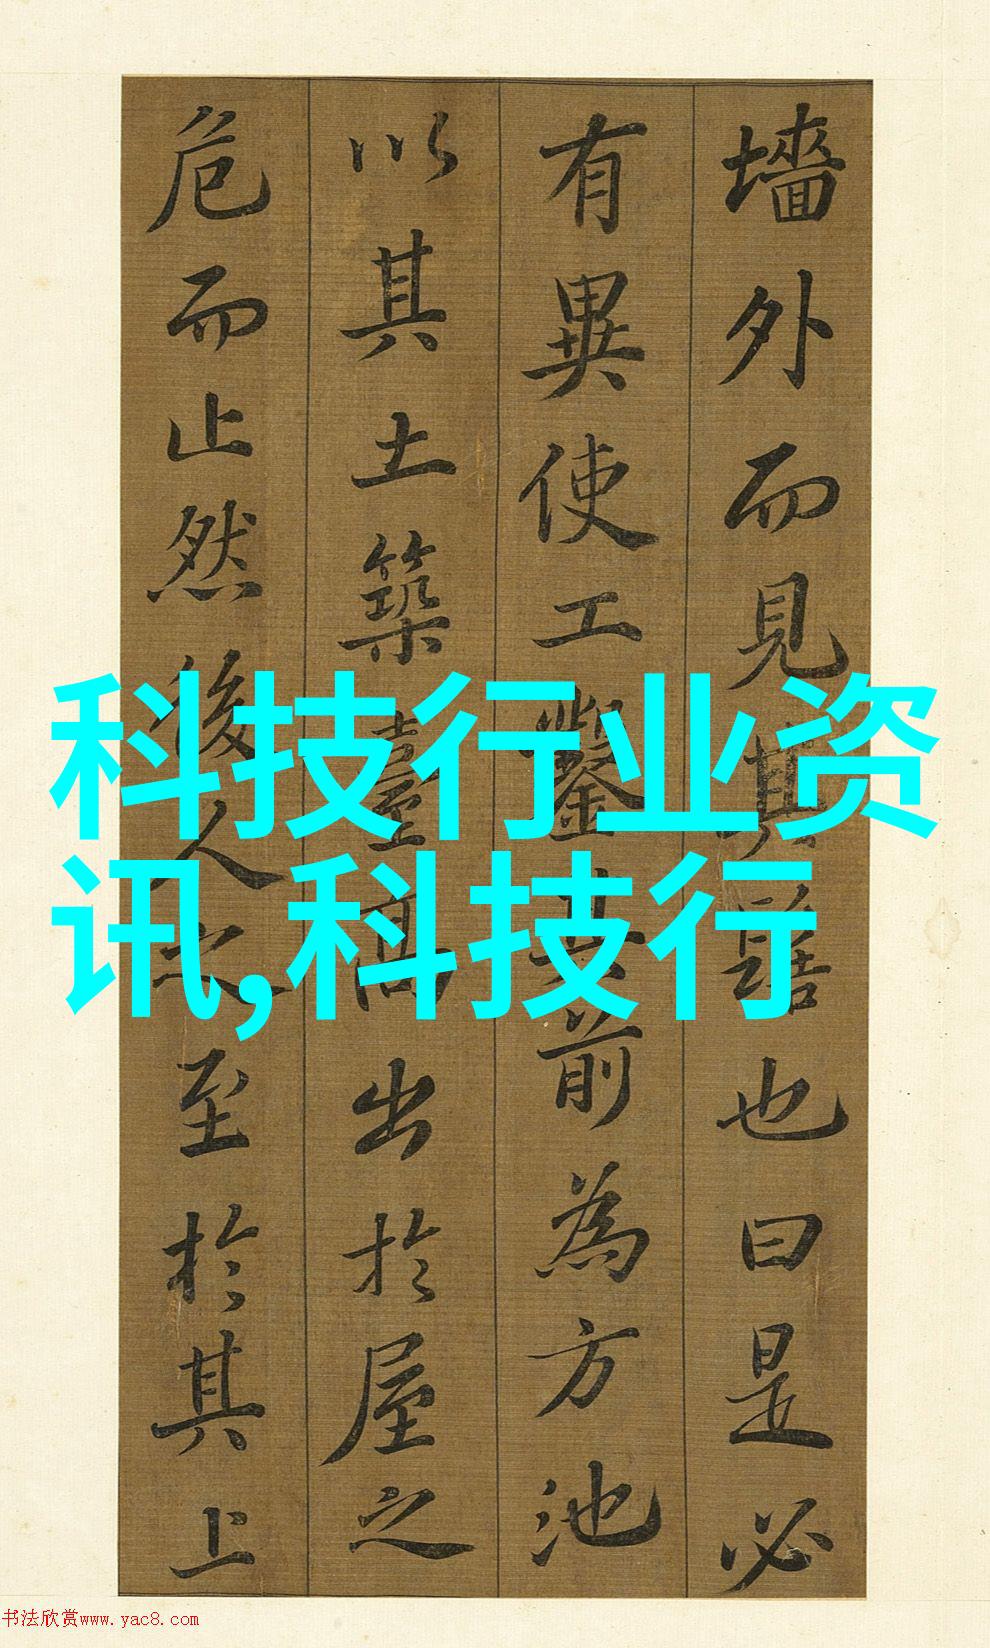 墻外而見其髻也曰是必
有異使工鑿其前為方池
以其土築臺高出於屋之
危而止然後人之至於其上
科技行业资
讯,科技行
书法欣赏www.yac8.com